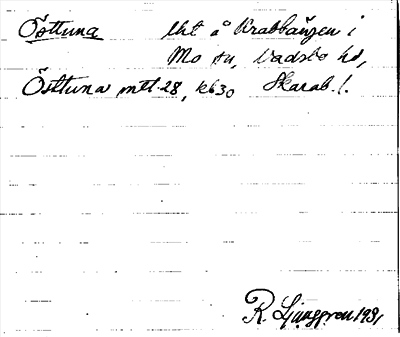 Östtuna lht å Krabbängen i
Mo sn, Vadsbo hd,
Östtuna mtl. 28, kb 30 Skarab. l.
R. Ljunggren 1931